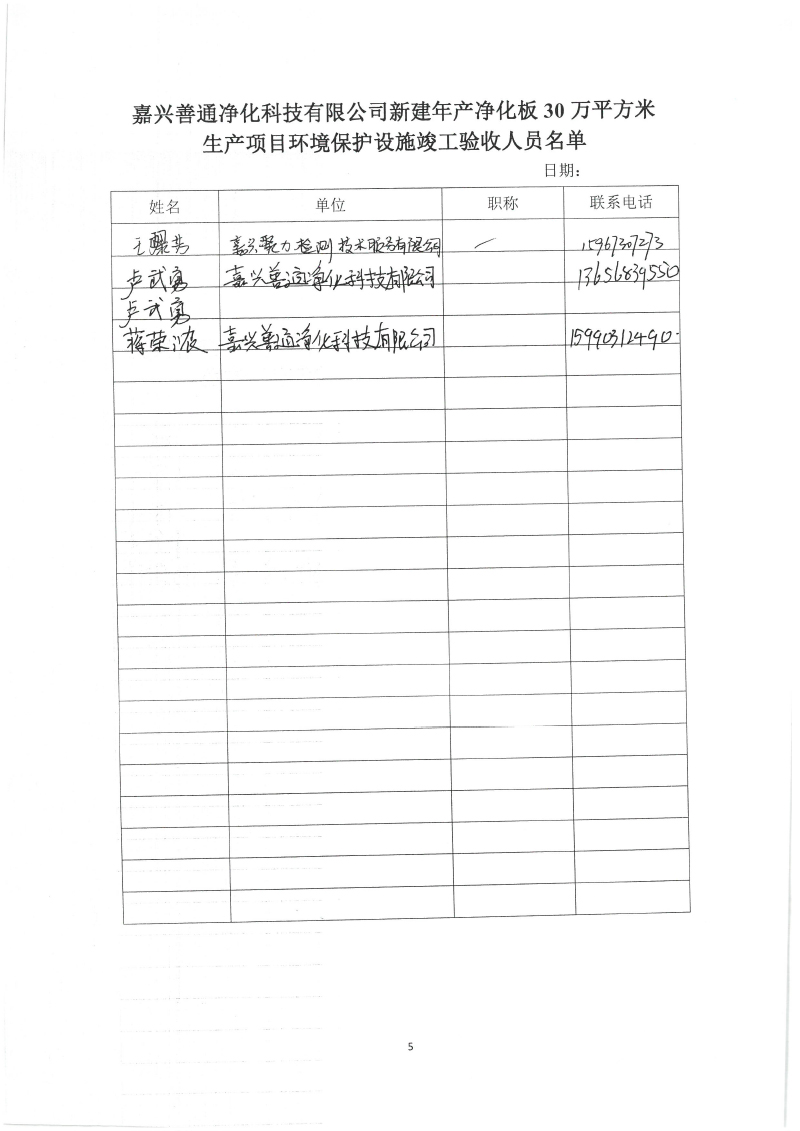 嘉兴善通净化科技有限公司新建年产净化板 30 万平方米
生产项目环境保护设施竣工验收人员名单
日期：
姓名 单位 职称 联系电话
王 嘉兴聚力检测技术服务有限公司 /
卢武勇 嘉兴善通净化科技有限公司 13656839550
卢武勇
蒋荣 嘉兴善通净化科技有限公司 15990312490
5